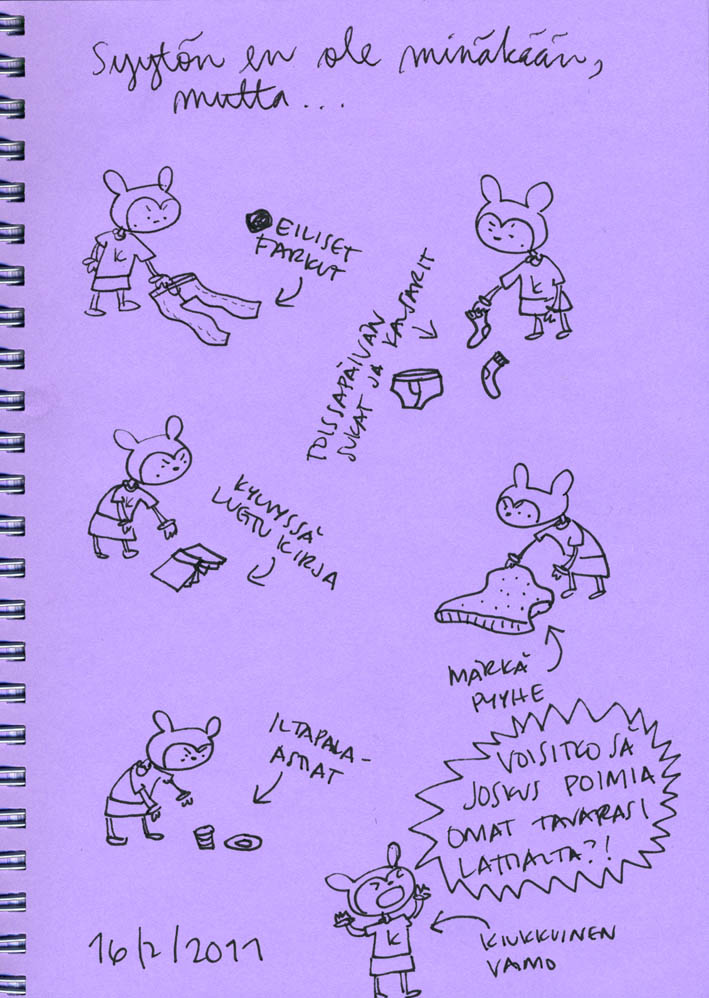 Syytön en ole minäkään,
mutta...
EILISET
FARKUT
TOISSAPÄIVÄN
SUKAT JA KALSARIT
KYLVYSSÄ
LUETU KIRJA
MÄRKÄ
PYYHE
ILTAPALA-
ASTIAT
VOISITKO SÄ
JOSKUS POIMIA
OMAT TAVARASI
LATTIALTA?!
KIUKKUINEN
VAIMO
16/2/2011
K
K
K
K